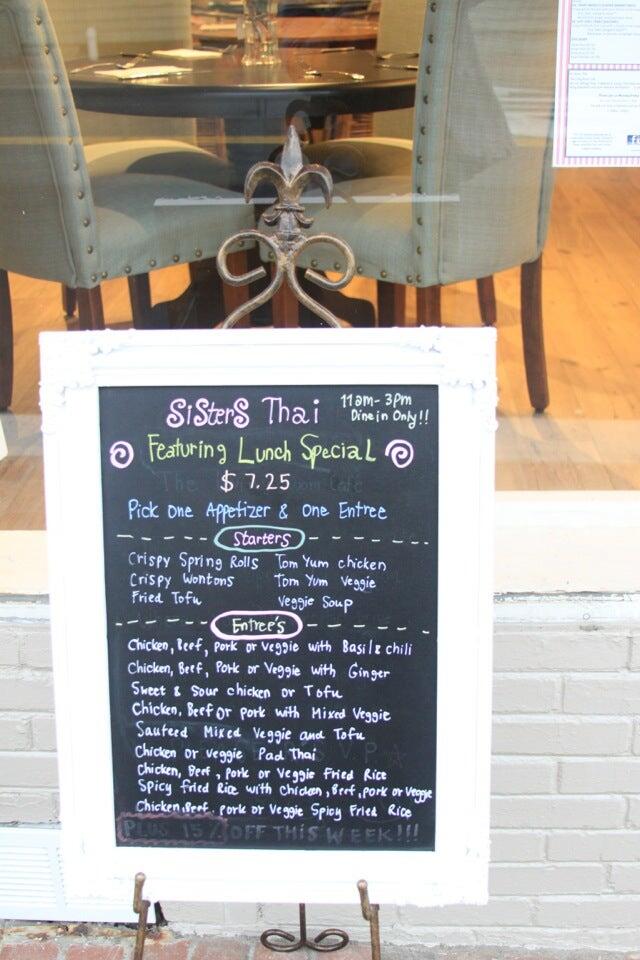 SiSterS Thai 11am-3pm
Dine in Only!!
Featuring Lunch Special
$7.25
Pick One Appetizer & One Entree
Starters
Crispy Spring Rolls Tom Yum chicken
Crispy Wontons Tom Yum Veggie
Fried Tofu Veggie Soup
Entree's
Chicken, Beef, pork or Veggie with Basil & chili
Chicken, Beef, Pork or Veggie with Ginger
Sweet & Sour chicken or Tofu
Chicken, Beef or pork with Mixed Veggie
Sauteed Mixed Veggie and Tofu
Chicken or veggie Pad Thai
Chicken, Beef, pork or Veggie Fried Rice
Spicy fried Rice with chicken, Beef, pork or Veggie
Chicken, Beef, pork or Veggie Spicy Fried Rice
PLUS 15% OFF THIS WEEK!!!